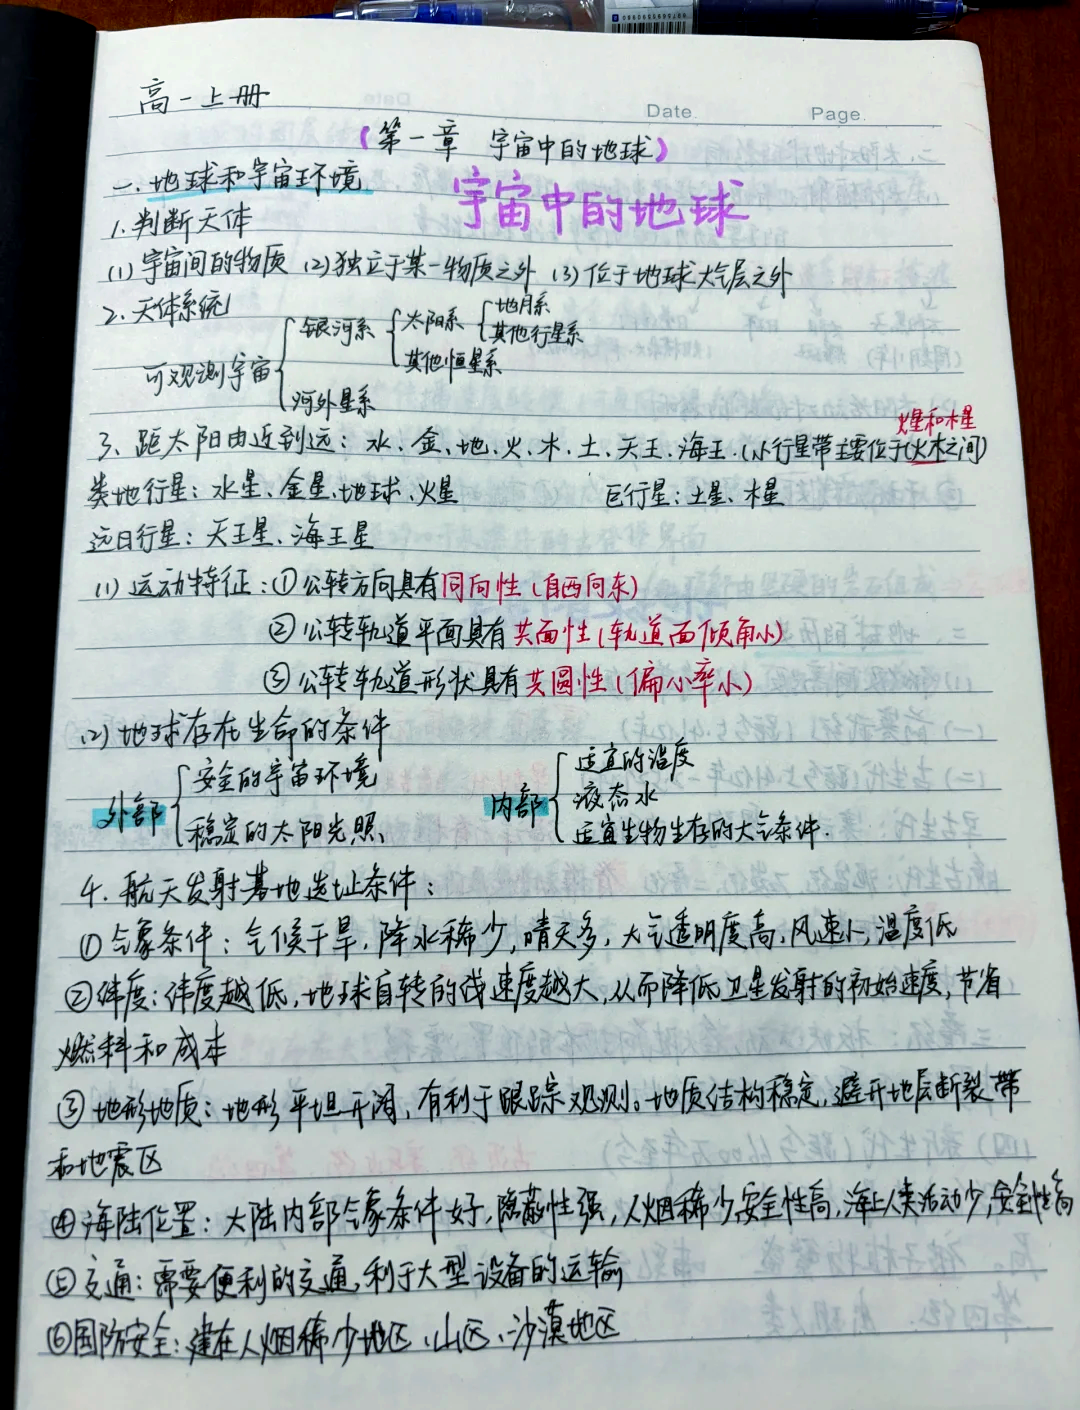 高一上册
Date.
Page.
(第一章 宇宙中的地球)
一、地球和宇宙环境
宇宙中的地球
1.判断天体
(1)宇宙间的物质 (2)独立于某一物质之外 (3)位于地球大气层之外
2.天体系统
可观测宇宙
银河系
太阳系
地月系
其他行星系
其他恒星系
河外星系
火星和木星
3、距太阳由近到远：水、金、地、火、木、土、天王、海王.(小行星带主要位于火木之间)
类地行星：水星、金星、地球、火星 巨行星：土星、木星
远日行星：天王星、海王星
(1)运动特征：①公转方向具有同向性(自西向东)
②公转轨道平面具有共面性(轨道面倾角小)
③公转轨道形状具有共圆性(偏心率小)
(2)地球存在生命的条件
外部
安全的宇宙环境
稳定的太阳光照
内部
适宜的温度
液态水
适宜生物生存的大气条件.
4.航天发射基地选址条件：
①气象条件：气候干旱,降水稀少,晴天多,大气透明度高,风速小,温度低
②纬度：纬度越低,地球自转的线速度越大,从而降低卫星发射的初始速度,节省
燃料和成本
③地形地质：地形平坦开阔,有利于跟踪观测。地质结构稳定,避开地层断裂带
和地震区
④海陆位置：大陆内部气象条件好,隐蔽性强,人烟稀少安全性高,海上人类活动少,安全性高
⑤交通：需要便利的交通,利于大型设备的运输
⑥国防安全：建在人烟稀少地区、山区、沙漠地区